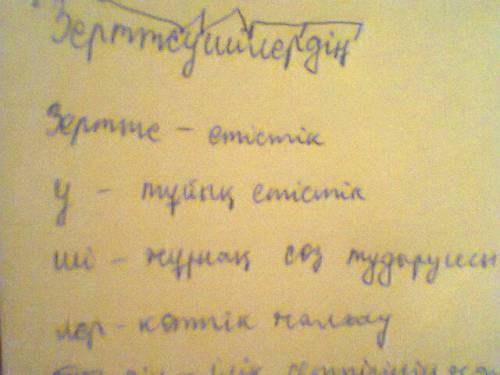 Зерттеушілердің
Зертте - етістік
у - тұйық етістік
ші - жұрнақ сөз тудырушы
лер - көптік жалғау